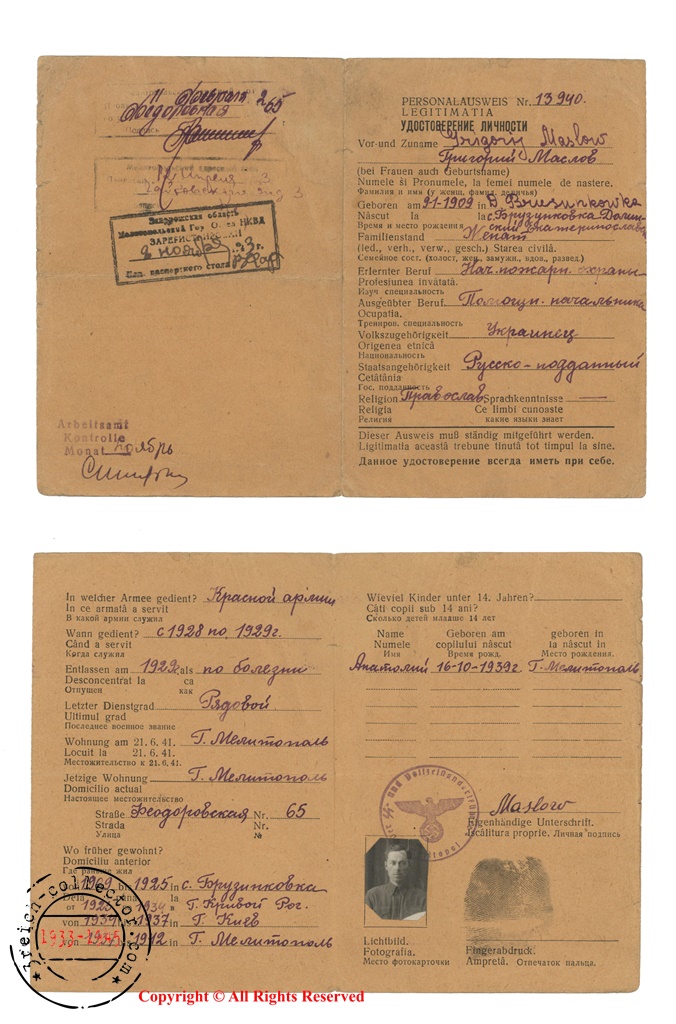 Феодоровская 65
Подпись
Запорожская область
Мелитопольский Гор. Отдел НКВД
ЗАРЕГИСТРИРОВАН
2 ноября 43 г.
Нач. паспортного стола
Arbeitsamt
Kontrolle
Monat ноябрь
PERSONALAUSWEIS Nr. 13940.
LEGITIMATIA
УДОСТОВЕРЕНИЕ ЛИЧНОСТИ
Vor-und Zuname Grigorij Maslow
Григорий Маслов
(bei Frauen auch Geburtsname)
Numele și Pronumele, la femei numele de nastere.
Фамилия и имя (у женщ. фамил. девичья)
Geboren am 9-1-1909 in D. Brusinkowka
Născut la la с. Брузинковка Долин-
Время и место рождения ский Екатеринослав
Familienstand Женат
(led., verh., verw., gesch.) Starea civilă.
Семейное сост. (холост, жен., замужн., вдов., развед.)
Erlernter Beruf Нач. пожарн. охраны
Profesiunea învătată.
Изуч специальность
Ausgeübter Beruf. Помощн. начальника
Ocupatia.
Трениров. специальность
Volkszugehörigkeit Украинец
Origenea etnică
Национальность
Staatsangehörigkeit Русско-подданный
Cetătânia
Гос. подданость
Religion Православ Sprachkenntnisse —
Religia Ce limbi cunoaste
Религия какие языки знает
Dieser Ausweis muß ständig mitgeführt werden.
Ligitimatia această trebune tinută tot timpul la sine.
Данное удостоверение всегда иметь при себе.
In welcher Armee gedient? Красной армии
In ce armată a servit
В какой армии служил
Wann gedient? с 1928 по 1929 г.
Când a servit
Когда служил
Entlassen am 1929 als по болезни
Desconcentrat la ca
Отпущен как
Letzter Dienstgrad Рядовой
Ultimul grad
Последнее военное звание
Wohnung am 21. 6. 41. Г. Мелитополь
Locuit la 21. 6. 41.
Местожительство к 21.6.41.
Jetzige Wohnung Г. Мелитополь
Domicilio actual
Настоящее местожительство
Straße Феодоровская Nr. 65
Strada Nr.
Улица №
Wo früher gewohnt?
Domiciliu anterior
Где раньше жил
von 1909 bis 1925 in с. Брузинковка
Dela până la
от 1925 1934 в Г. Кривой Рог.
von 1934 1937 in Г. Киев
von 1937 1942 in Г. Мелитополь
Wieviel Kinder unter 14. Jahren?
Câti copii sub 14 ani?
Сколько детей младше 14 лет
Name Geboren am geboren in
Numele copilului născut la născut in
Имя Время рожд. Место рождения.
Анатолий 16-10-1939г. Г. Мелитополь
Maslow
Eigenhändige Unterschrift.
Iscălitura proprie. Личная подпись
Lichtbild.
Fotografia.
Место фотокарточки
Fingerabdruck.
Ampretă. Отпечаток пальца.
3reich-collector.com
1933-1945
Copyright © All Rights Reserved